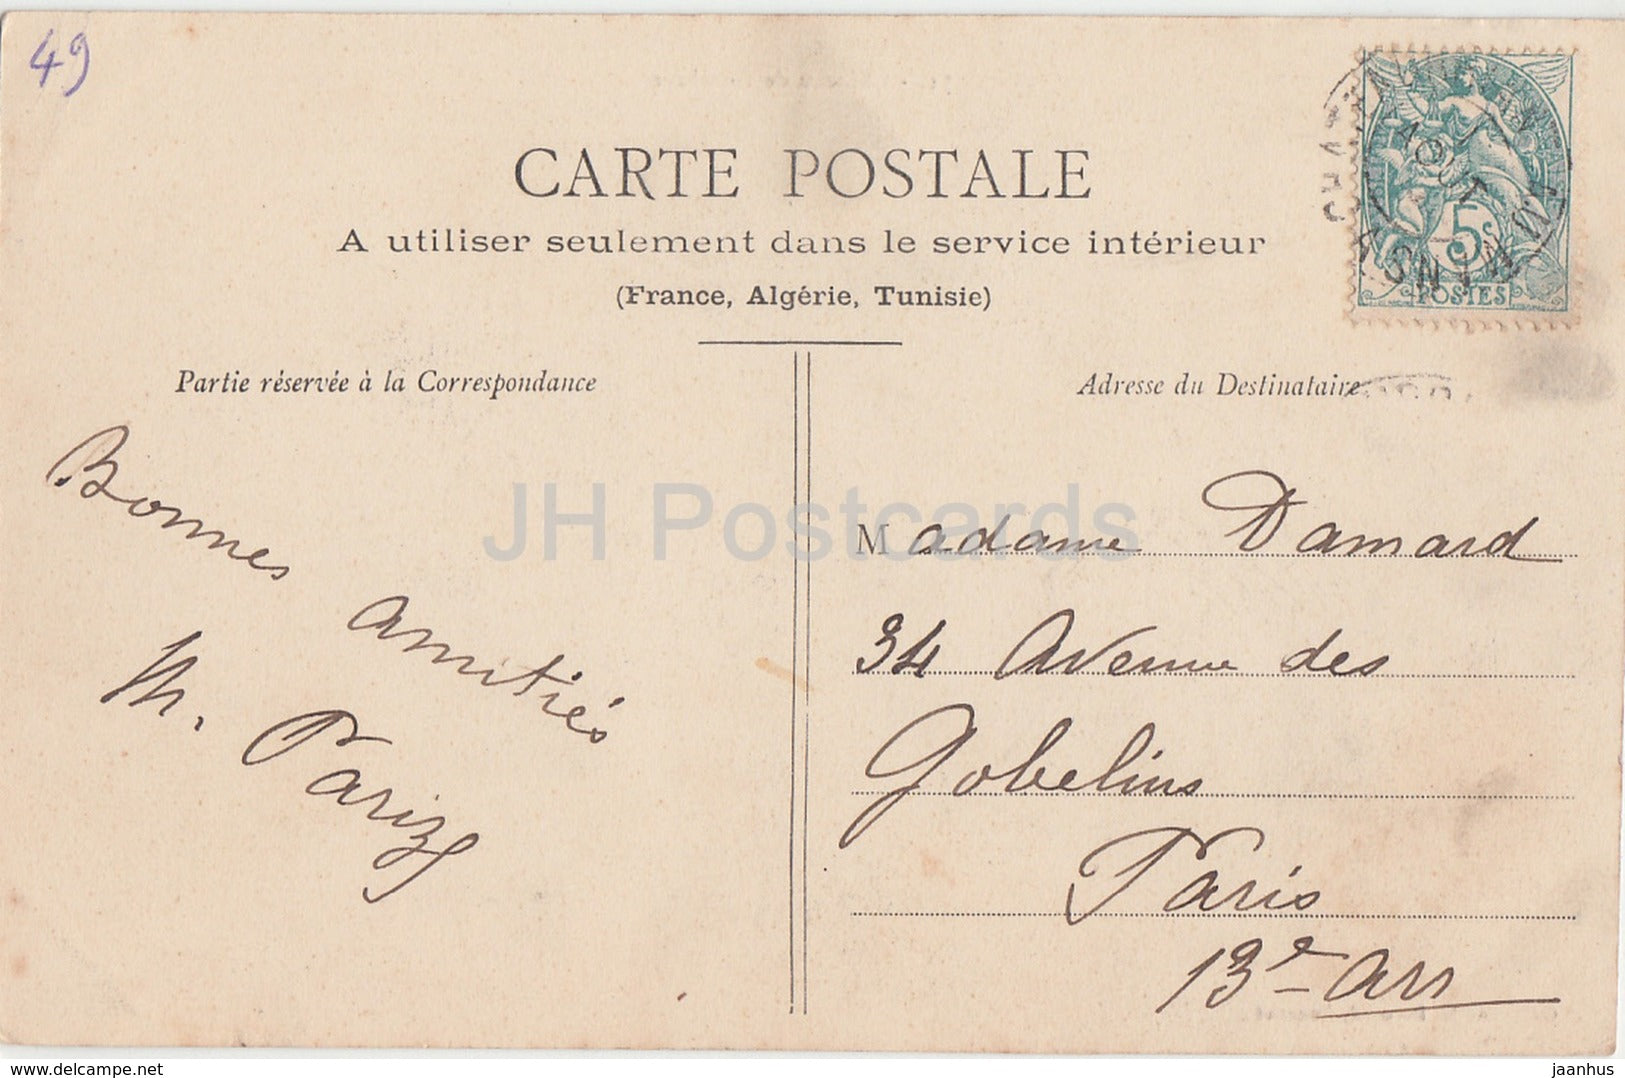 49
CARTE POSTALE
A utiliser seulement dans le service intérieur
(France, Algérie, Tunisie)
Partie réservée à la Correspondance
Adresse du Destinataire
Bonnes
amitiés
M. Parizy
Madame Damard
34 Avenue des
Gobelins
Paris
13e arr
5c
POSTES
AOUT
JH Postcards
www.delcampe.net
jaanhus